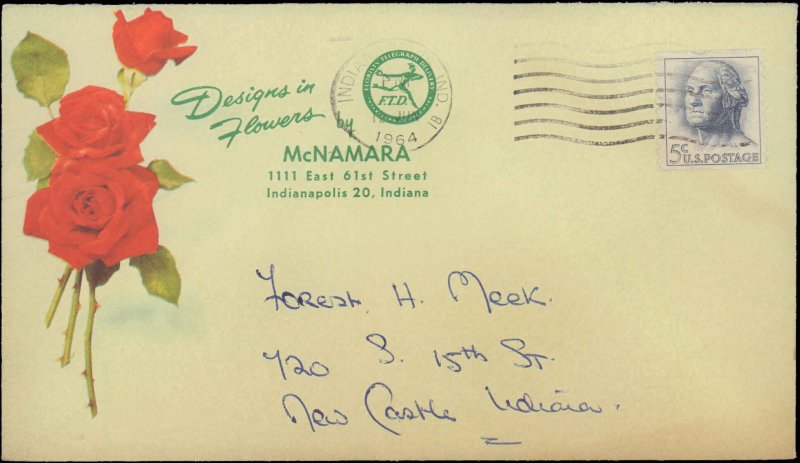 Designs in
Flowers
by
McNAMARA
1111 East 61st Street
Indianapolis 20, Indiana
FLORISTS TELEGRAPH DELIVERY
F.T.D.
IND.
1964
1B
5c
U.S. POSTAGE
Forest H. Meek.
720 S. 15th St.
New Castle Indiana.